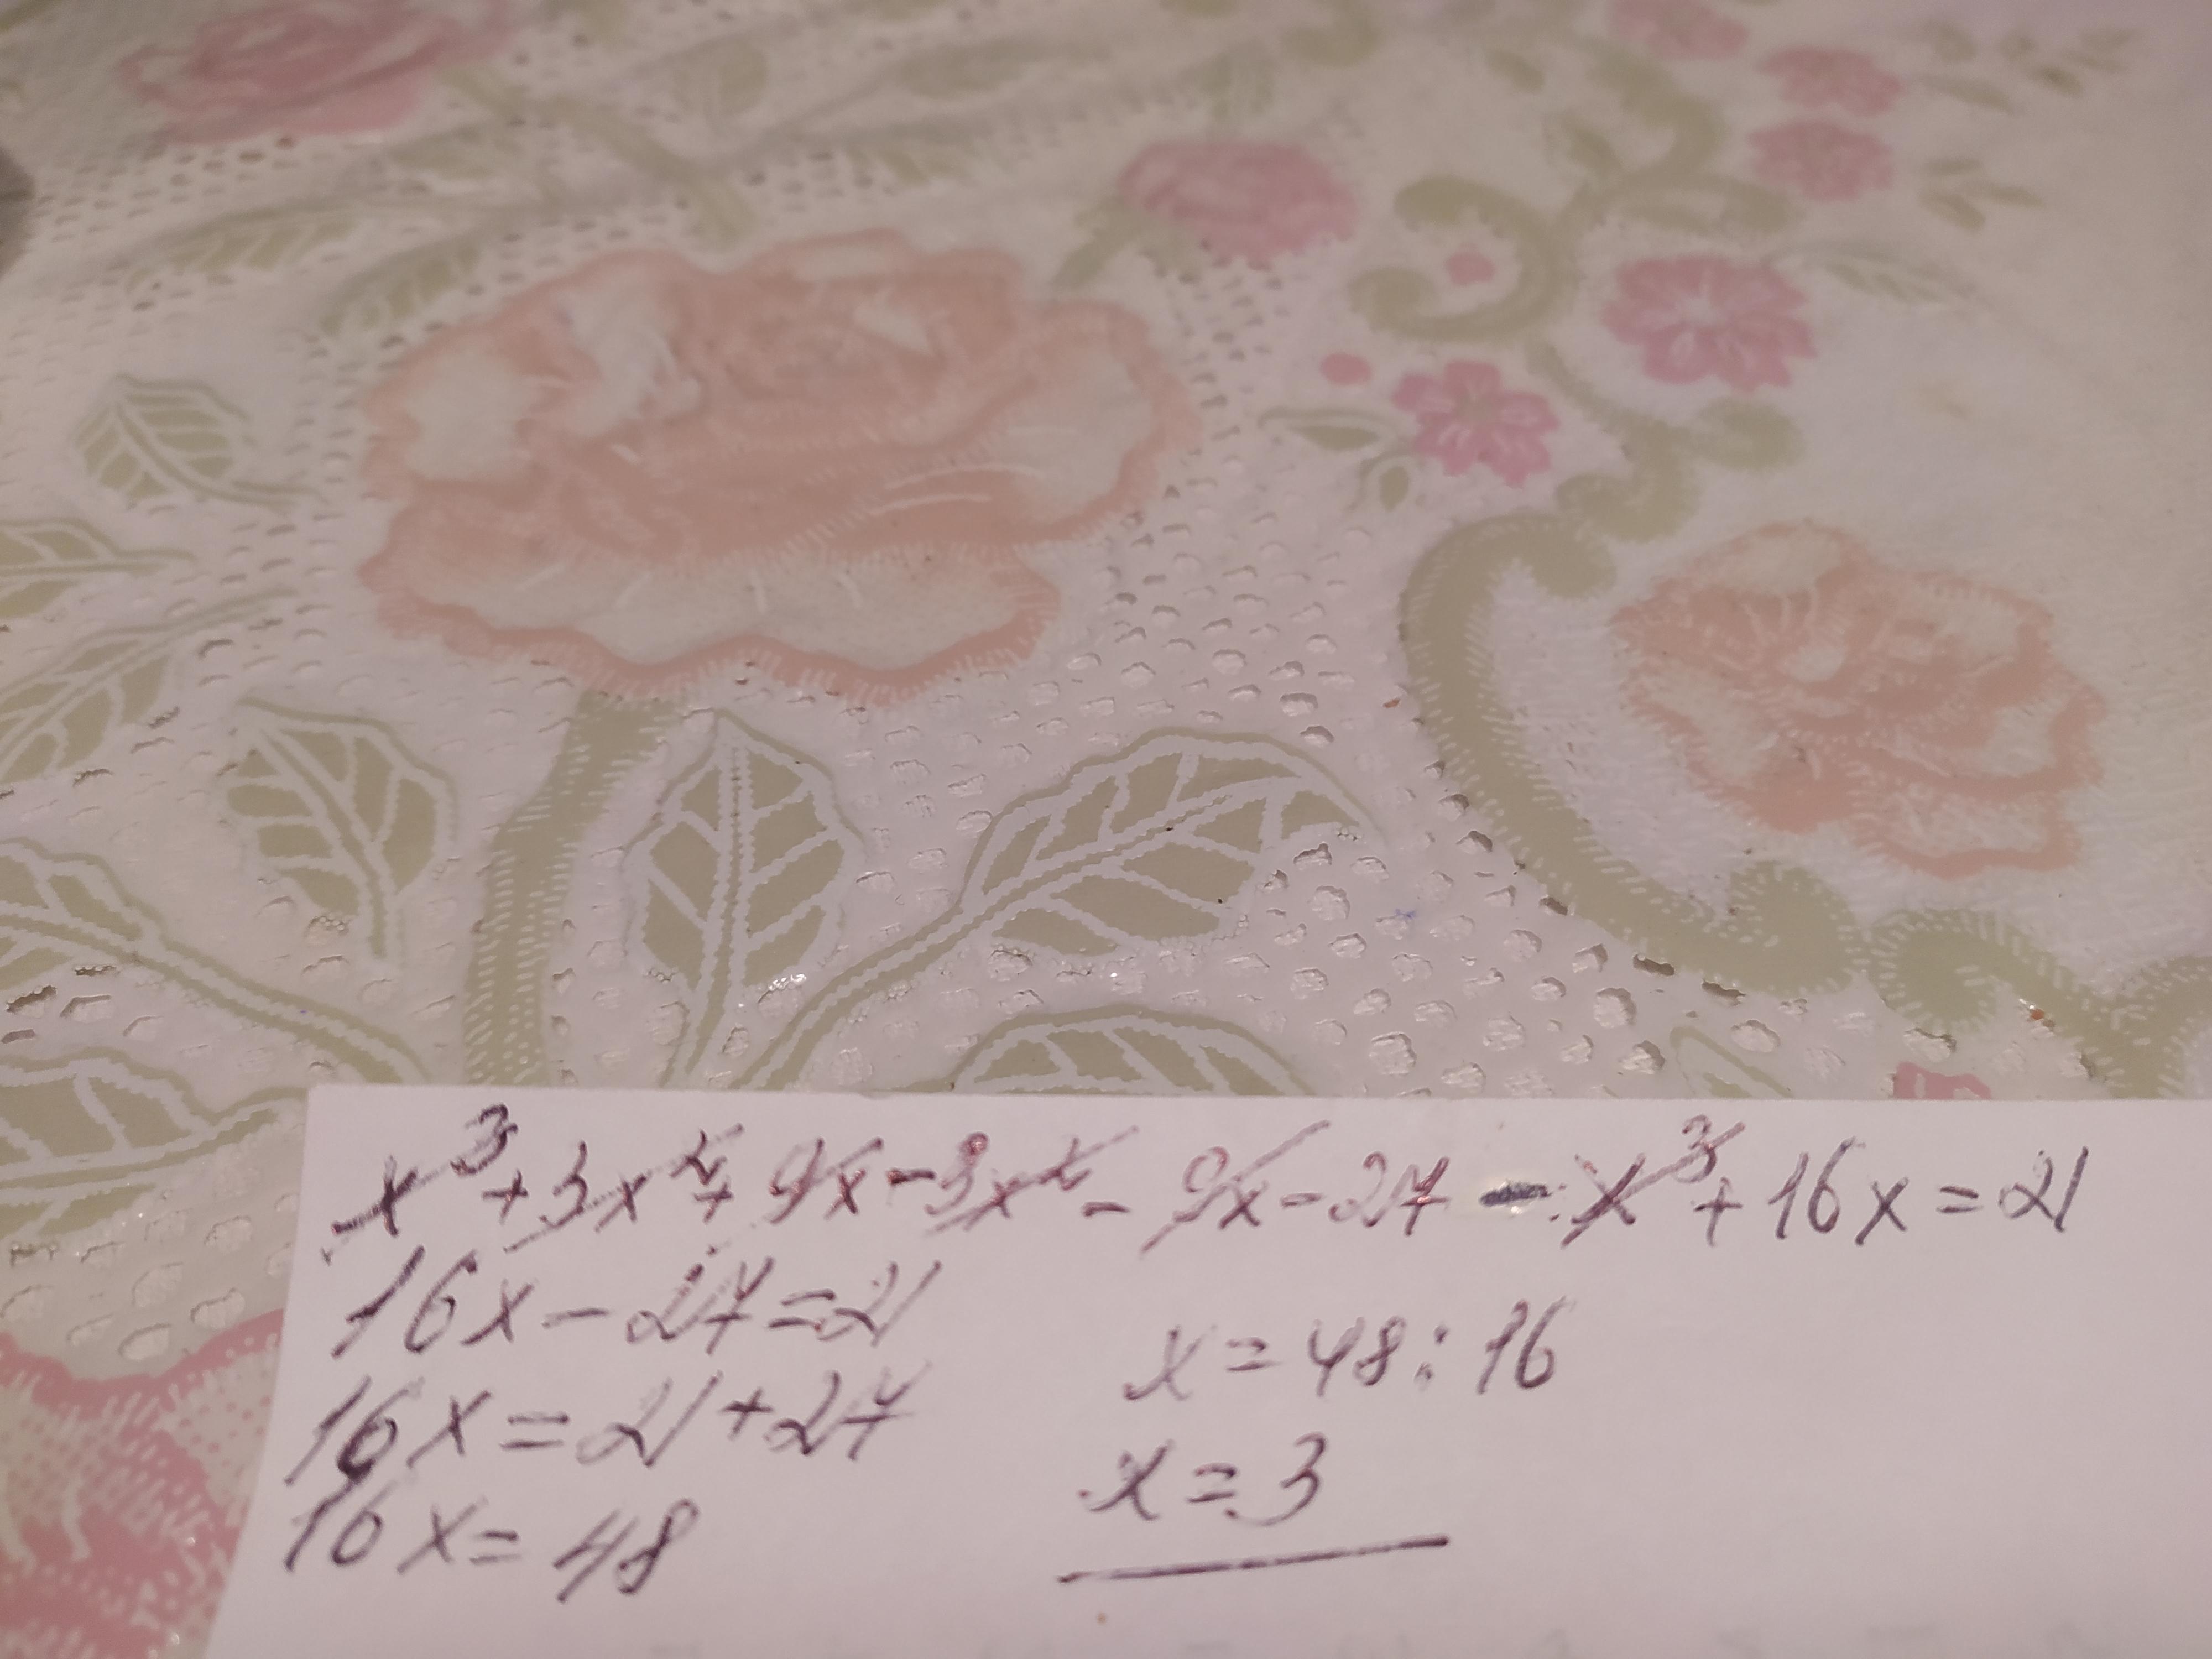 x³+3x²+9x-3x²-9x-27-x³+16x=21
16x-27=21
16x=21+27
16x=48
x=48:16
x=3